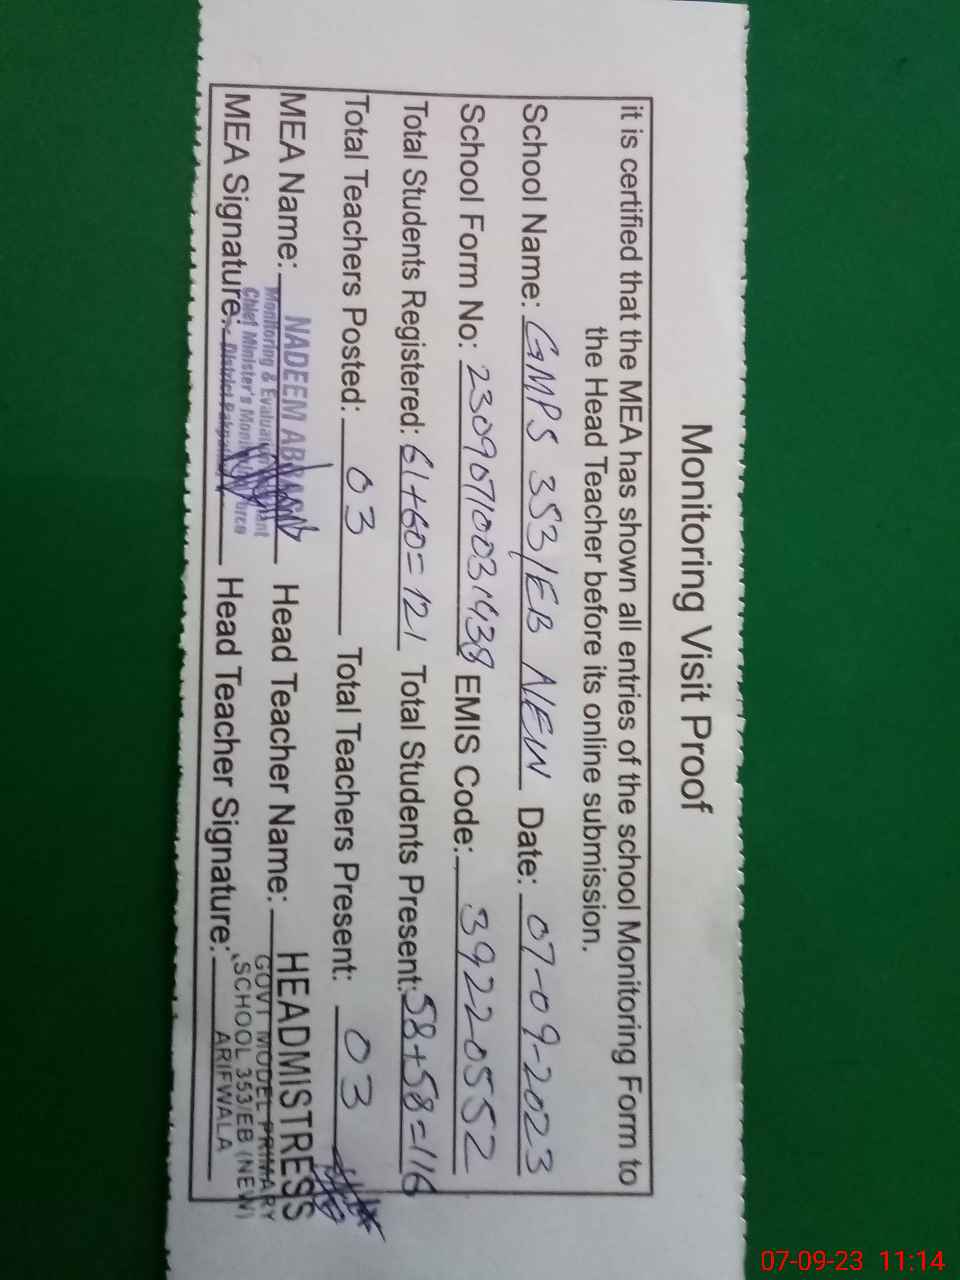 Monitoring Visit Proof
it is certified that the MEA has shown all entries of the school Monitoring Form to
the Head Teacher before its online submission.
School Name: GMPS 353/EB NEW Date: 07-09-2023
School Form No: 23090710031438 EMIS Code: 39220552
Total Students Registered: 61+60=121 Total Students Present: 58+58=116
Total Teachers Posted: 03 Total Teachers Present: 03
MEA Name: NADEEM ABBASI Head Teacher Name: HEADMISTRESS
Monitoring & Evaluation GOVT MODEL PRIMARY
Chief Minister's SCHOOL 353/EB (NEW)
MEA Signature: District Head Teacher Signature: ARIFWALA
07-09-23 11:14